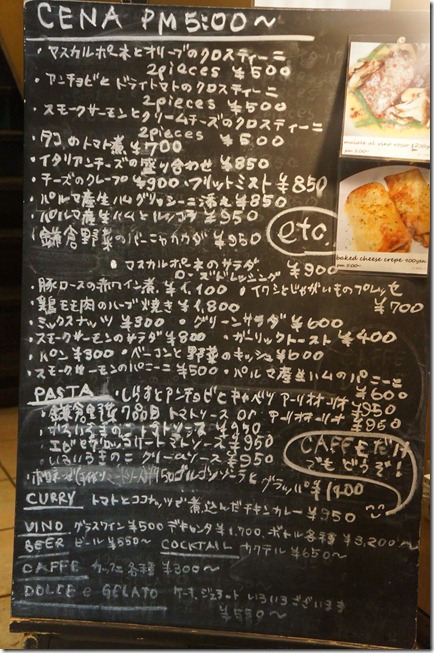 CENA PM 5:00〜
・マスカルポーネとオリーブのクロスティーニ
2pieces ¥500
・アンチョビとドライトマトのクロスティーニ
2pieces ¥500
・スモークサーモンとクリームチーズのクロスティーニ
2pieces ¥500
・タコのトマト煮 ¥700
・イタリアンチーズの盛り合わせ ¥850
・チーズのクレープ ¥900 ・フリットミスト ¥850
・パルマ産生ハムグリッシーニ添え ¥850
・パルマ産生ハムとルッコラ ¥950
・鎌倉野菜のバーニャカウダ ¥950
etc.
・マスカルポーネのサラダ
ローズドレッシング ¥900
・豚ロースの赤ワイン煮 ¥1,100 ・イワシとじゃがいものプレッセ
¥700
・鶏モモ肉のハーブ焼き ¥1,800
・ミックスナッツ ¥300 ・グリーンサラダ ¥600
・スモークサーモンのサラダ ¥800 ・ガーリックトースト ¥400
・パン ¥300 ・ベーコンと野菜のキッシュ ¥600
・スモークサーモンのパニーニ ¥500 ・パルマ産生ハムのパニーニ
¥600
PASTA ・しらすとアンチョビとキャベツ アーリオオーリオ ¥950
トマトソース or アーリオオーリオ ¥950
トマトソース ¥950
トマトソース ¥950
・いろいろきのこ クリームソース ¥950
ゴルゴンゾーラとグラッパ ¥1400
CAFFEだけ
でもどうぞ!
CURRY トマトとココナッツで煮込んだチキンカレー ¥950
VINO グラスワイン ¥500 デキャンタ ¥1,700、ボトル各種 ¥3,200〜
BEER ビール ¥550〜 COCKTAIL カクテル ¥650〜
CAFFE カッフェ各種 ¥300〜
DOLCE e GELATO ケーキ、ジェラート いろいろございます
¥550〜
pm 5:00〜
baked cheese crepe 900yen
pm 5:00〜